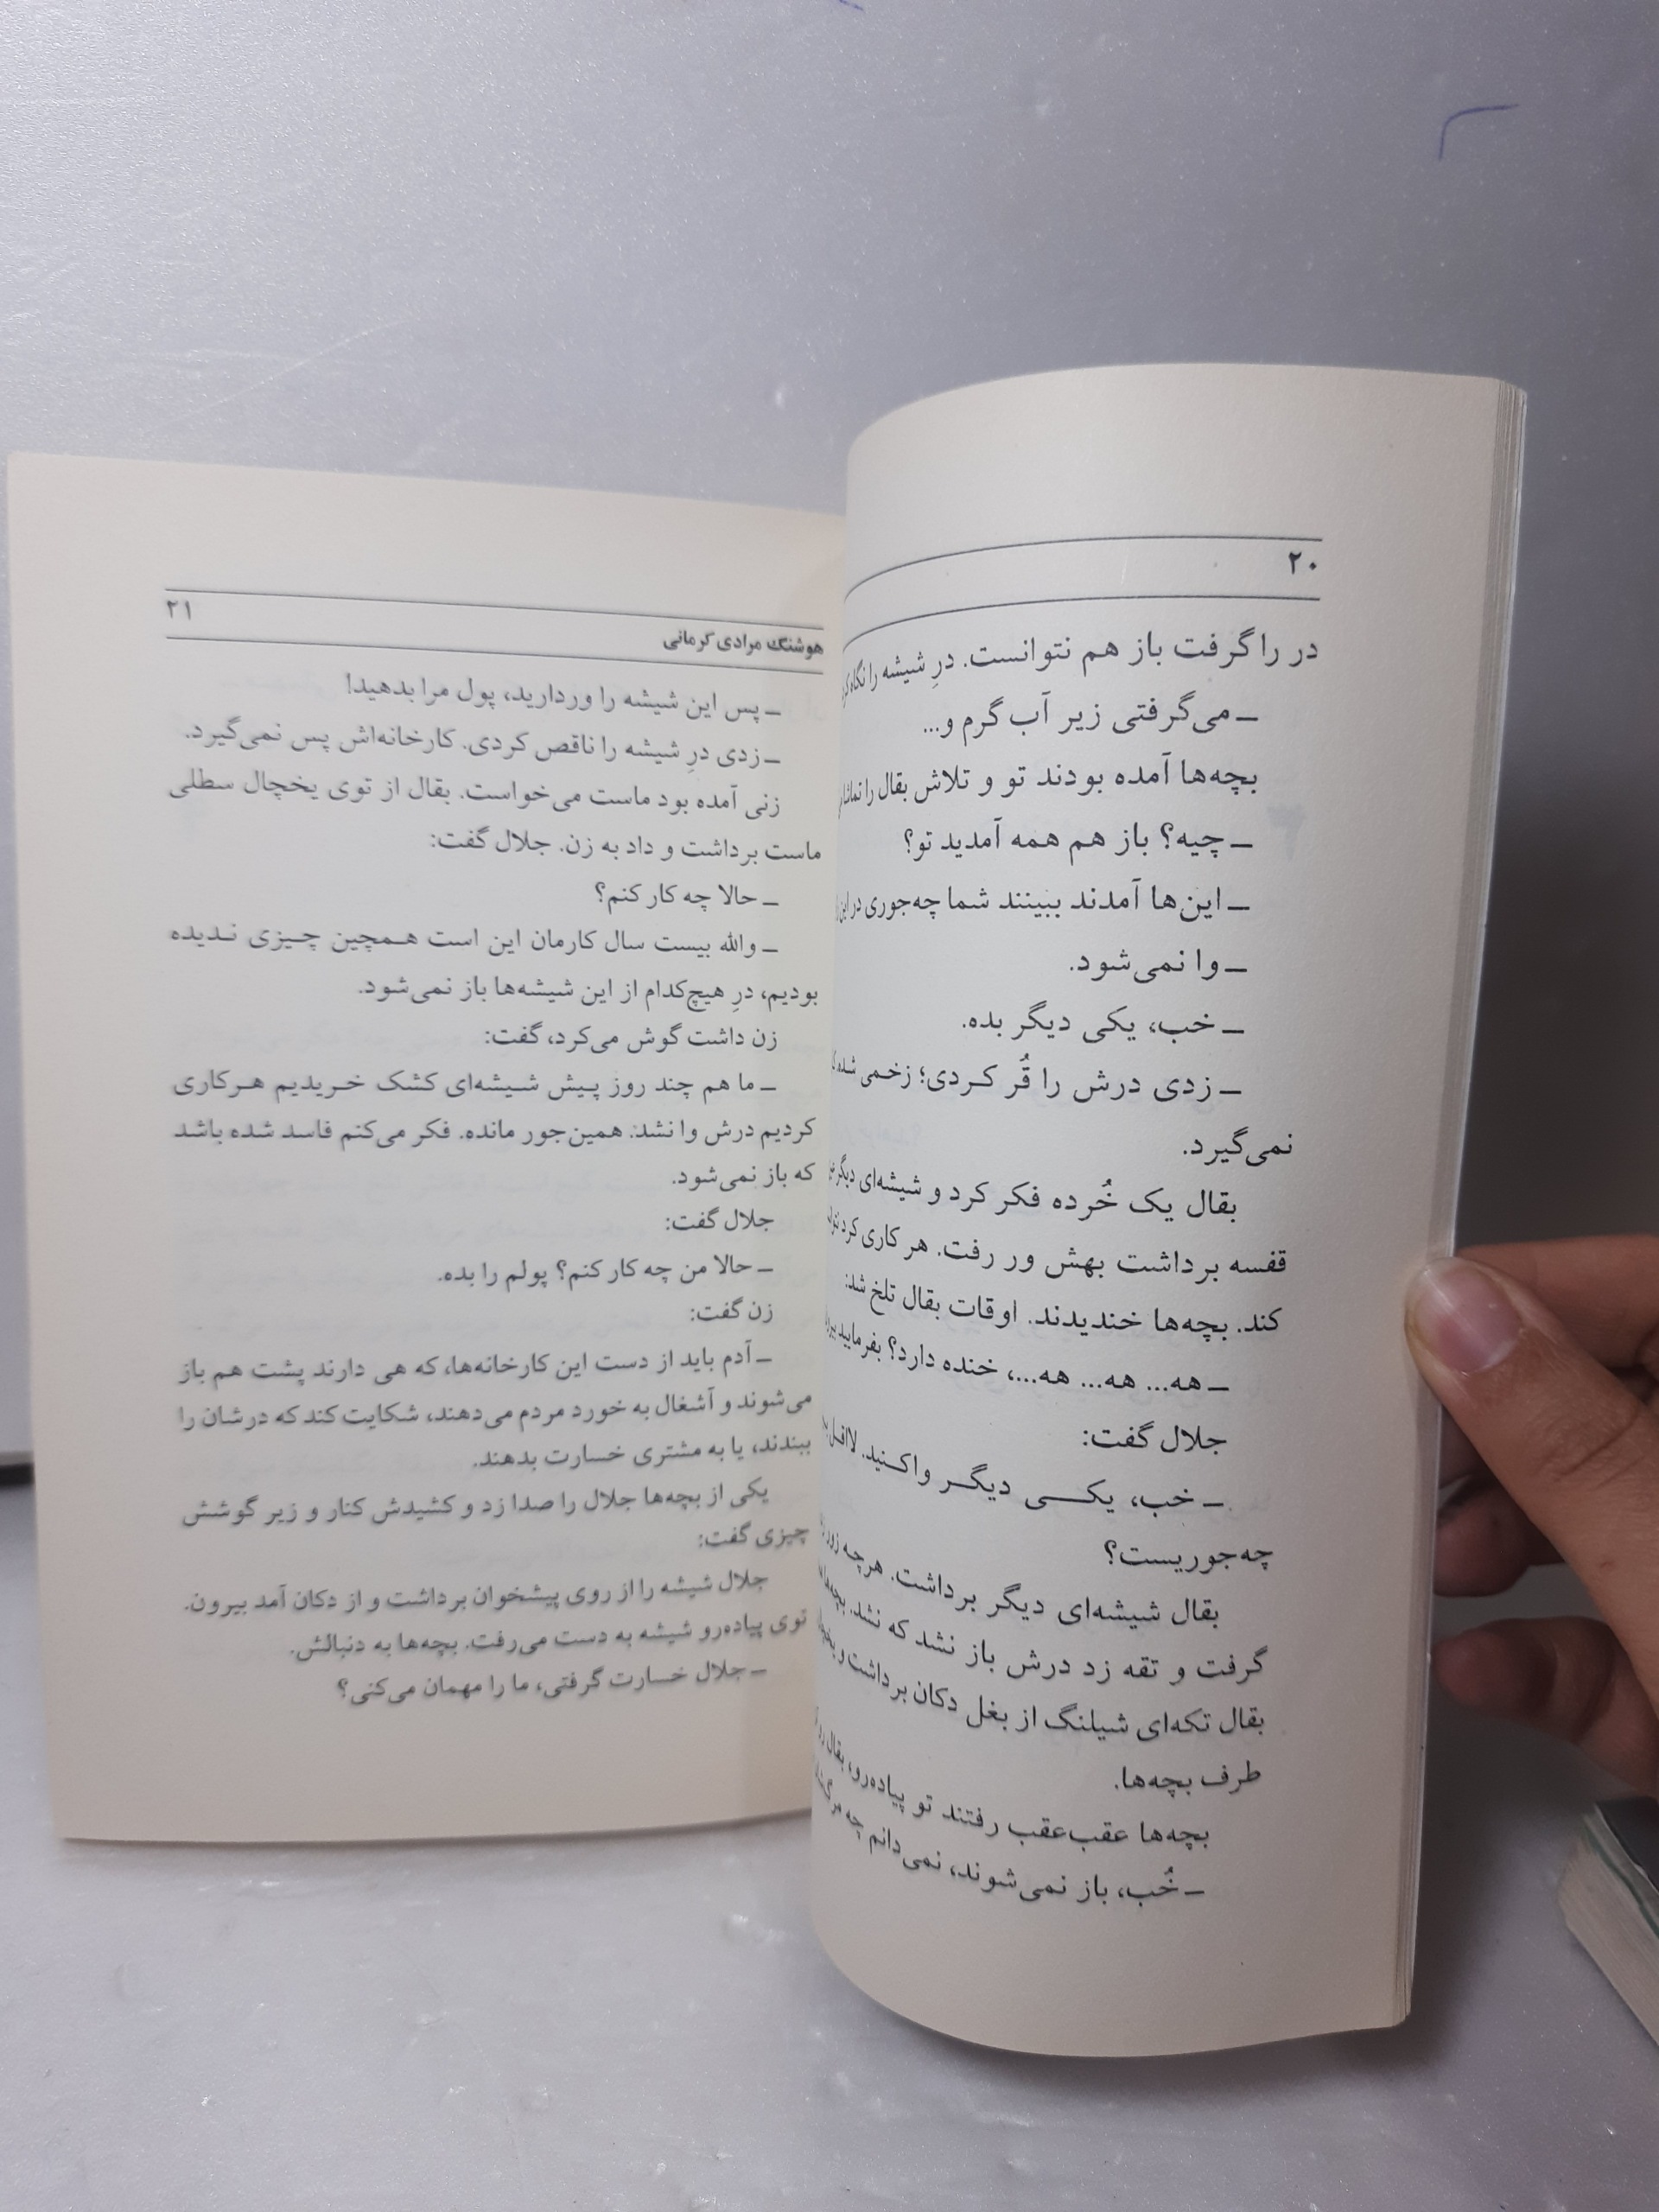 ۲۰
در را گرفت باز هم نتوانست. درِ شیشه را نگاه کرد
ـ می‌گرفتی زیر آب گرم و...
بچه‌ها آمده بودند تو و تلاش بقال را
ـ چیه؟ باز هم همه آمدید تو؟
ـ این‌ها آمدند ببینند شما چه‌جوری در این
ـ وا نمی‌شود.
ـ خب، یکی دیگر بده.
ـ زدی درش را قُر کردی؛ زخمی شده
نمی‌گیرد.
بقال یک خُرده فکر کرد و شیشه‌ای دیگر
قفسه برداشت بهش ور رفت. هر کاری کرد
کند. بچه‌ها خندیدند. اوقات بقال تلخ شد:
ـ هه... هه... هه...، خنده دارد؟ بفرمایید
جلال گفت:
ـ خب، یکی دیگر واکنید. لااقل
چه‌جوریست؟
بقال شیشه‌ای دیگر برداشت. هرچه زور
گرفت و تقه زد درش باز نشد که نشد.
بقال تکه‌ای شیلنگ از بغل دکان برداشت و
طرف بچه‌ها.
بچه‌ها عقب‌عقب رفتند تو پیاده‌رو، بقال رو
ـ خُب، باز نمی‌شوند، نمی‌دانم چه
۲۱
هوشنگ مرادی کرمانی
ـ پس این شیشه را وردارید، پول مرا بدهید!
ـ زدی درِ شیشه را ناقص کردی. کارخانه‌اش پس نمی‌گیرد.
زنی آمده بود ماست می‌خواست. بقال از توی یخچال سطلی
ماست برداشت و داد به زن. جلال گفت:
ـ حالا چه کار کنم؟
ـ والله بیست سال کارمان این است همچین چیزی ندیده
بودیم، درِ هیچ‌کدام از این شیشه‌ها باز نمی‌شود.
زن داشت گوش می‌کرد، گفت:
ـ ما هم چند روز پیش شیشه‌ای کشک خریدیم هرکاری
کردیم درش وا نشد. همین‌جور مانده. فکر می‌کنم فاسد شده باشد
که باز نمی‌شود.
جلال گفت:
ـ حالا من چه کار کنم؟ پولم را بده.
زن گفت:
ـ آدم باید از دست این کارخانه‌ها، که هی دارند پشت هم باز
می‌شوند و آشغال به خورد مردم می‌دهند، شکایت کند که درشان را
ببندند، یا به مشتری خسارت بدهند.
یکی از بچه‌ها جلال را صدا زد و کشیدش کنار و زیر گوشش
چیزی گفت:
جلال شیشه را از روی پیشخوان برداشت و از دکان آمد بیرون.
توی پیاده‌رو شیشه به دست می‌رفت. بچه‌ها به دنبالش.
ـ جلال خسارت گرفتی، ما را مهمان می‌کنی؟